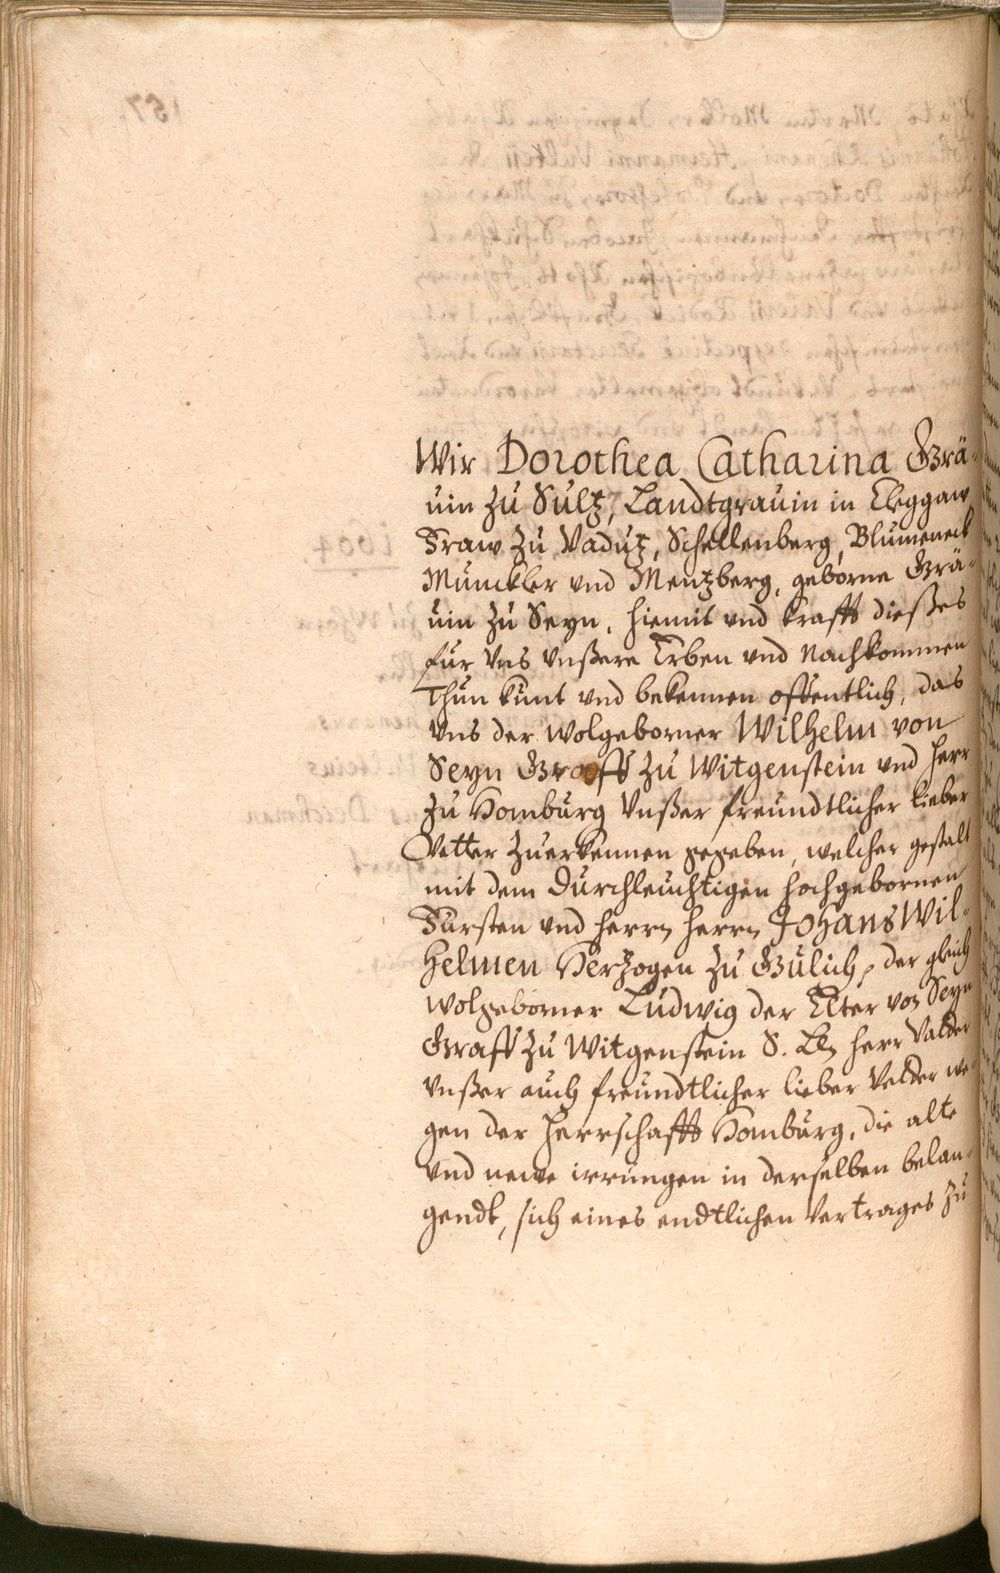 Wir Dorothea Catharina Grä-
uin zu Sultz, Landtgrauin in Cleggaw
Fraw zu Vadutz, Schellenberg, Blumeneck
Münckler vnd Mentzberg, geborne Grä-
uin zu Seyn, hiemit vnd krafft dießes
für Vns vnßere Erben vnd Nachkommen
Thun kunt vnd bekennen offentlich, das
Vns der wolgeborner Wilhelm von
Seyn Graff zu Witgenstein vnd Herr
zu Homburg Vnßer freundtlicher lieber
Vetter zuerkennen gegeben, welcher gestalt
mit dem Durchleuchtigen hochgebornen
Fürsten vnd Herrn Herrn Johans Wil-
helmen Hertzogen zu Gülich, der gleich
wolgeborner Ludwig der Elter von Seyn
Graff zu Witgenstein S. L. Herr Vatter
Vnßer auch freundtlicher lieber Vetter we-
gen der Herrschafft Homburg, die alte
vnd newe irrungen in derselben belan-
gendt, sich eines endtlichen Vertrages zu